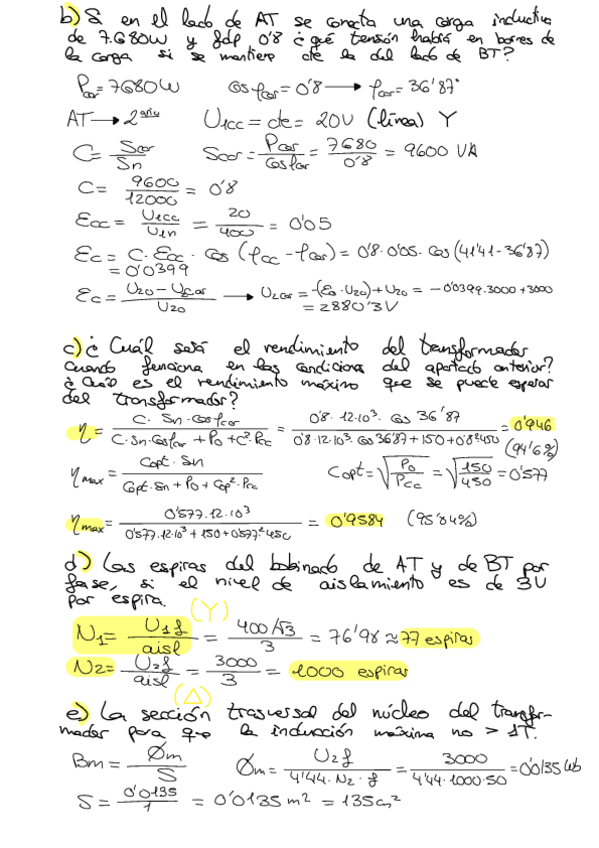 b) Si en el lado de AT se conecta una carga inductiva
de 7.680W y fdp 0'8 ¿qué tensión habrá en bornes de
la carga si se mantiene cte la del lado de BT?
Pcar = 7680W cosφcar = 0'8 → φcar = 36'87°
AT → 2ario U1cc = cte = 20V (línea) Y
C = Scar/Sn Scar = Pcar/cosφcar = 7680/0'8 = 9600 VA
C = 9600/12000 = 0'8
Ecc = U1cc/U1n = 20/400 = 0'05
Ec = C·Ecc·cos(φcc-φcar) = 0'8·0'05·cos(41'41-36'87)
= 0'0399
Ec = U20-U2car/U20 → U2car = -(Ec·U20)+U20 = -0'0399·3000+3000
= 2880'3V
c) ¿Cuál será el rendimiento del transformador
cuando funciona en las condiciones del apartado anterior?
¿Cuál es el rendimiento máximo que se puede esperar
del transformador?
η = C·Sn·cosφcar/C·Sn·cosφcar+P0+C²·Pcc = 0'8·12·10³·cos 36'87/0'8·12·10³·cos 36'87+150+0'8²·450 = 0'946
(94'6%)
ηmax = Copt·Sn/Copt·Sn+P0+Cop²·Pcc Copt = √P0/Pcc = √150/450 = 0'577
ηmax = 0'577·12·10³/0'577·12·10³+150+0'577²·450 = 0'9584 (95'84%)
d) Las espiras del bobinado de AT y de BT por
fase, si el nivel de aislamiento es de 3V
por espira.
(Y)
N1 = U1f/aisl = 400/√3/3 = 76'98 ≈ 77 espiras
N2 = U2f/aisl = 3000/3 = 1000 espiras
(Δ)
e) La sección trasversal del núcleo del transfor-
mador para que la inducción máxima no > 1T.
Bm = Øm/S Øm = U2f/4'44·N2·f = 3000/4'44·1000·50 = 0'0135 Wb
S = 0'0135/1 = 0'0135 m² = 135cm²